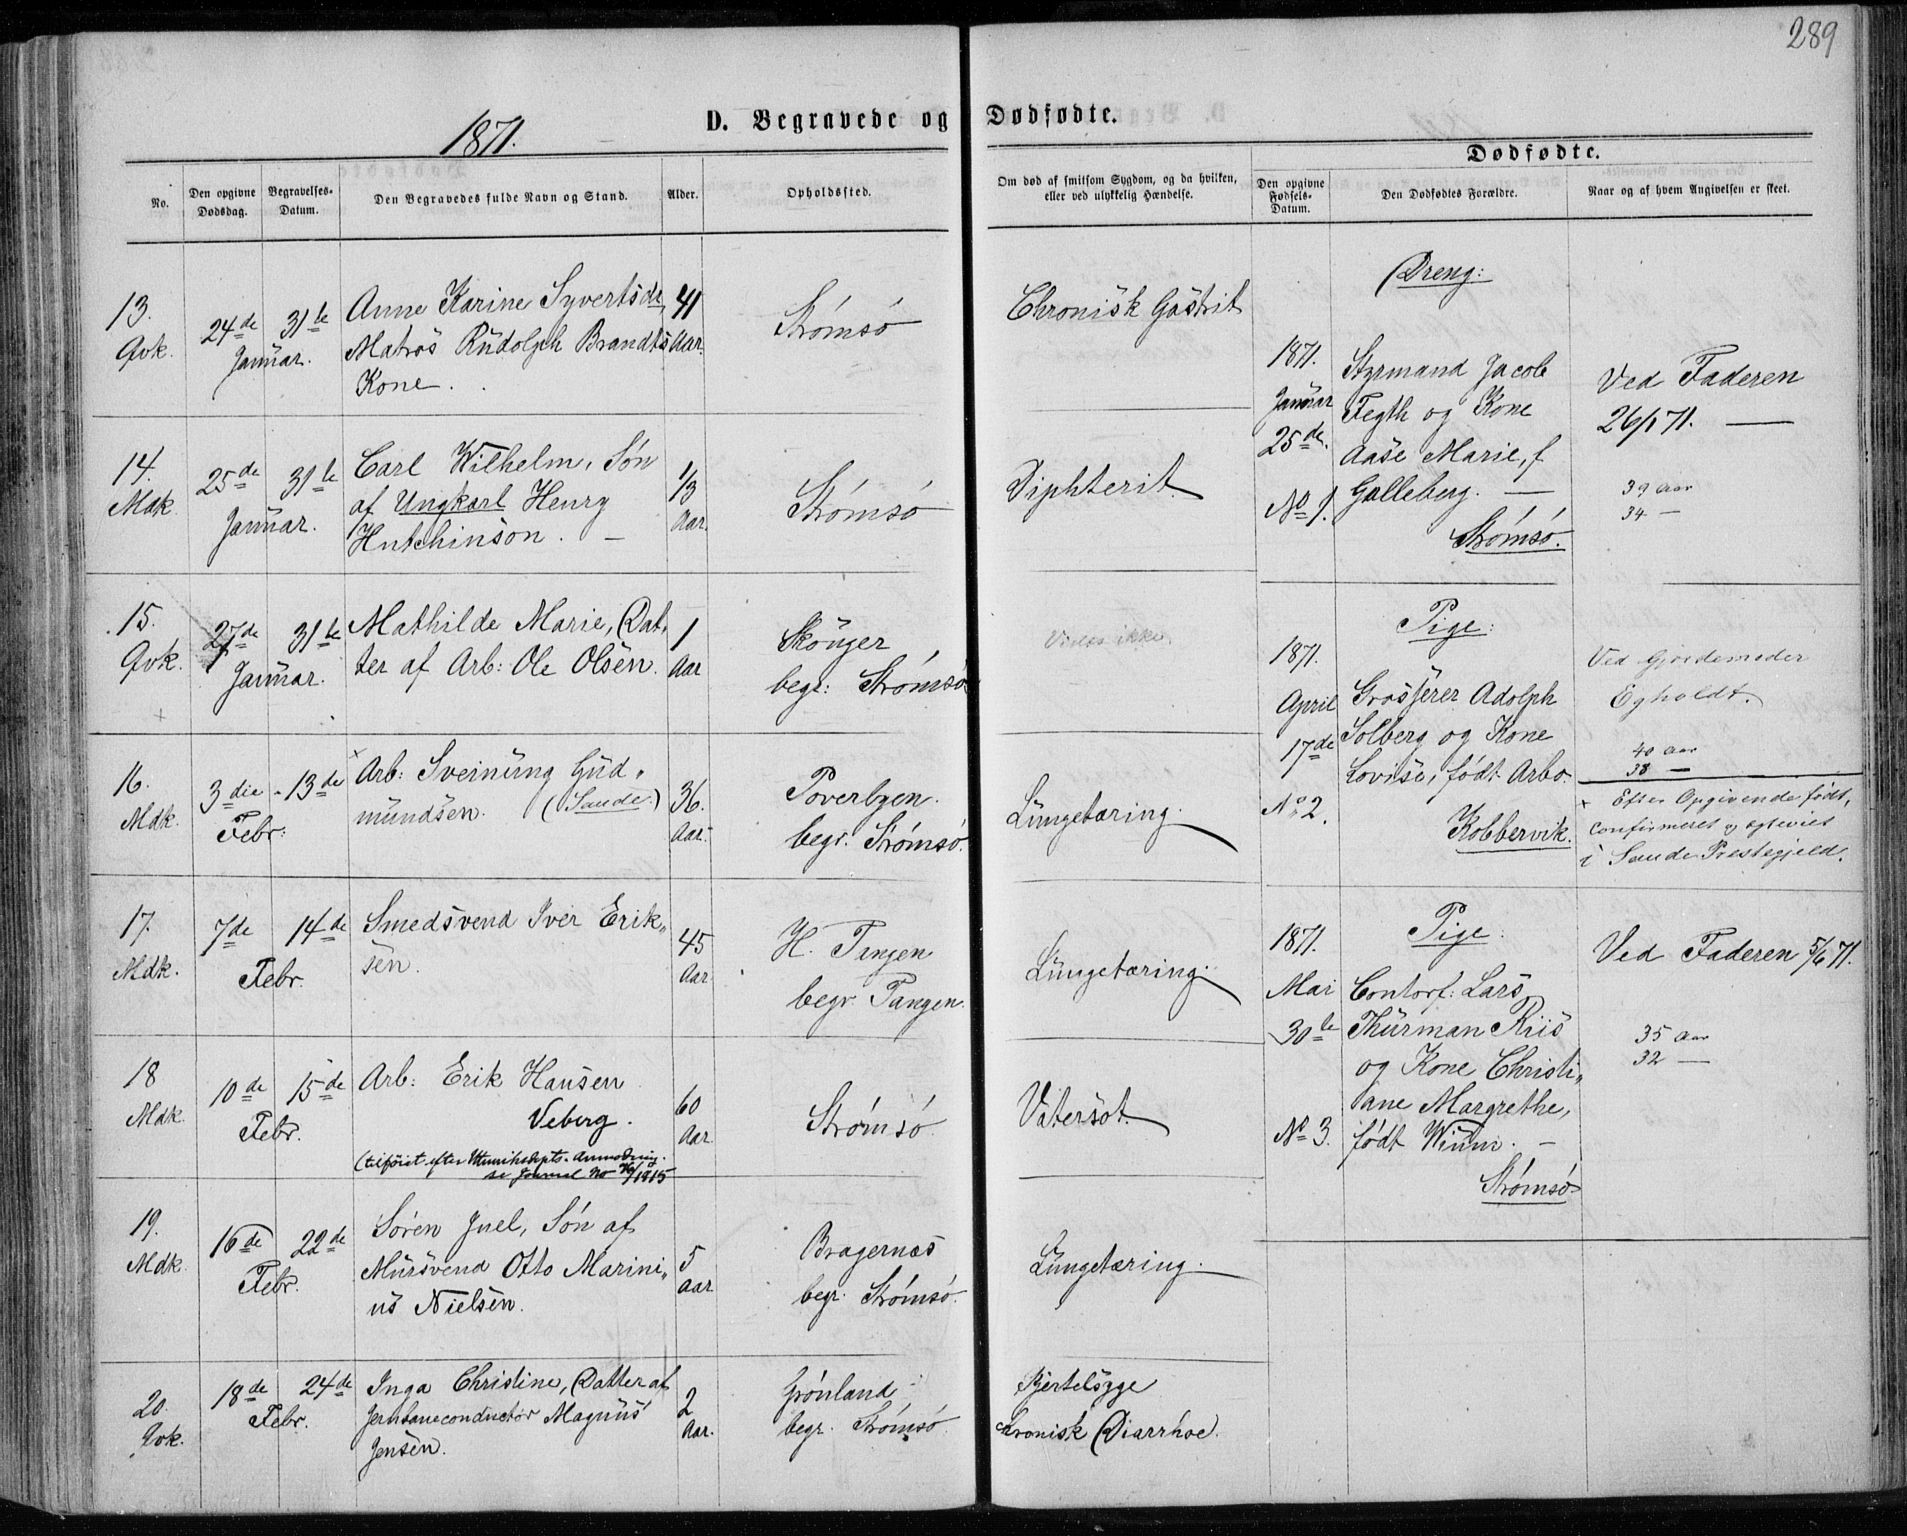 289
1871.
D. Begravede og Dødfødte.
Dødfødte.
No.
Den opgivne Dødsdag.
Begravelses-Datum.
Den Begravedes fulde Navn og Stand.
Alder.
Opholdssted.
Om død af smitsom Sygdom, og da hvilken,
eller ved ulykkelig Hændelse.
Den opgivne Fødsels-Datum.
Den Dødfødtes Forældre.
Naar og af hvem Angivelsen er skeet.
13.
Qvk.
24de 31te
Januar.
Anne Karine Syvertsd.
Matros Rudolph Brandts
Kone.
41
Aar.
Strømsø
Chronisk Gastrit
14.
Mdk.
25de 31te
Januar.
Carl Wilhelm, Søn
af Ungkarl Henry
Hutchinson. —
1/3
Aar.
Strømsø
Diphterit.
15.
Qvk.
27de 31te
Januar.
Mathilde Marie, Dat-
ter af Arb: Ole Olsen.
1
Aar
Skouger
begr: Strømsø
Vides ikke.
16.
Mdk.
3die - 13de
Febr:
× Arb: Sveinung Gud-
mundsen. (Sande.)
36.
Aar.
Poverbyen.
begr. Strømsø.
Lungetæring.
17.
Mdk.
7de 14de
Febr.
Smedsvend Iver Erik-
sen.
45
Aar
H. Tangen
begr. Tangen.
Lungetæring.
18
Mdk.
10de 15de
Febr.
Arb: Erik Hansen
Veberg.
(tilføiet efter Anmodning.
se Journal No /1915
60
Aar.
Strømsø.
Vatersot.
19.
Mdk.
16de 22de
Febr.
Søren Juel, Søn af
Mursvend Otto Marini-
us Nielsen.
5
Aar
Bragernæs
begr. Strømsø.
Lungetæring.
20.
Qvk.
18de 24de
Febr.
Inga Christine, Datter af
Jernbaneconductør Magnus
Jensen.
2
Aar.
Grønland
begr. Strømsø.
Kjertelsyge
Chronisk Diarrhoe.
Dreng:
1871.
Januar
25de.
No 1.
Styrmand Jacob
Fegth og Kone
Aase Marie, f
Galleberg. —
Strømsø.
Ved Faderen
26/1 71. —
39 Aar
34 —
Pige:
1871.
April
17de
No. 2.
Grosserer Adolph
Solberg og Kone
Lovise, født Arbo
Kobbervik.
Ved Gjordemoder
Egholdt.
40 Aar
38 —
× Efter Opgivende født,
confirmeret og egteviet
i Sande Prestegjeld.
Pige.
1871.
Mai
30te
No 3.
Contorf: Lars
Thurman Riis
og Kone Christi-
ane Margrethe,
født Wium. —
Strømsø
Ved Faderen 5/6 71.
35 Aar
32 —